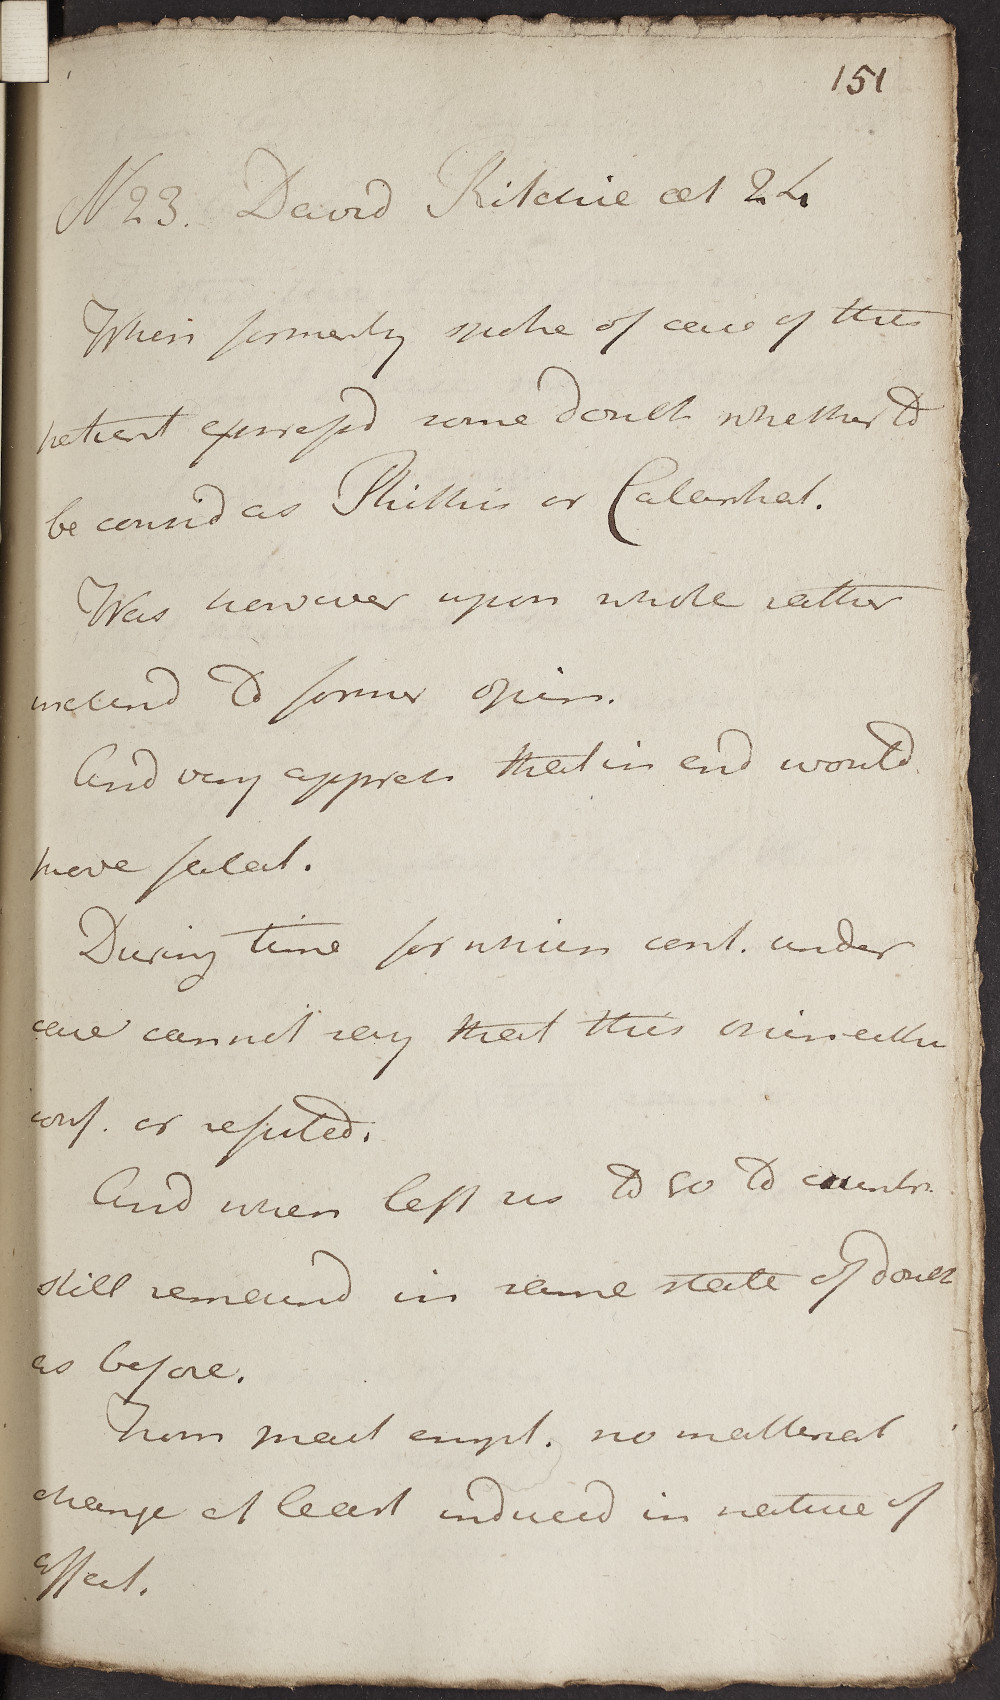 151
N 23. David Ritchie æt 24
When formerly spoke of case of this
patient express'd some doubt whether to
be consid as Phthisis or Catarrhal.
Was however upon whole rather
inclind to former opin.
And very appreh that in end would
prove fatal.
During time for which cont. under
care cannot say that this opin either
conf. or refuted.
And when left us to go to countr.
still remaind in same state of doubt
as before.
From pract empl. no matterial
change at least induced in nature of
affect.